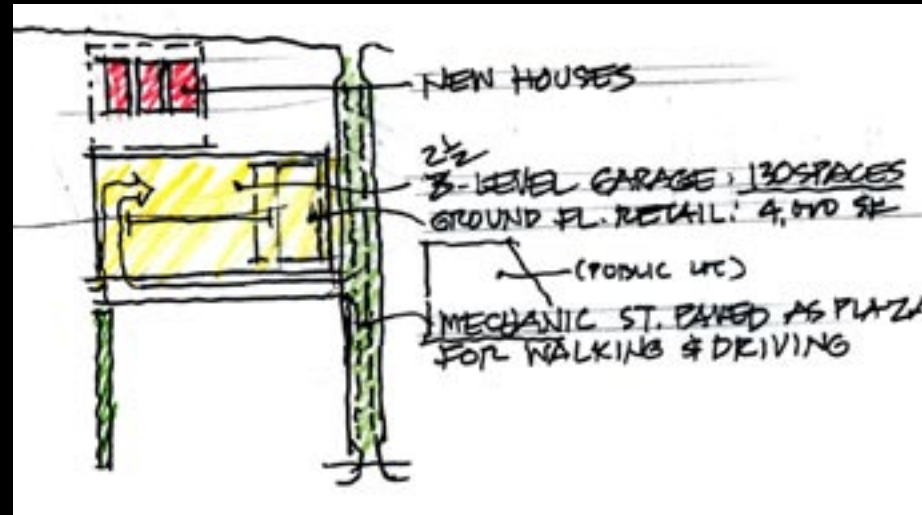 NEW HOUSES
2½
3-LEVEL GARAGE: 130 SPACES
GROUND FL. RETAIL: 4,000 SF
(PUBLIC
MECHANIC ST. PAVED AS PLAZA
FOR WALKING & DRIVING